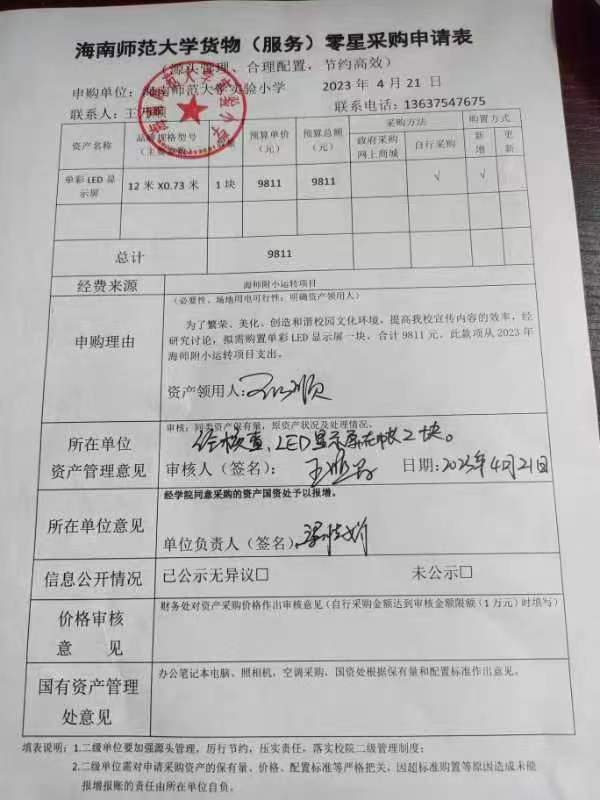 海南师范大学货物（服务）零星采购申请表
（源头管理，合理配置，节约高效）
申购单位：海南师范大学实验小学 2023 年 4 月 21 日
联系人：王 顺 联系电话：13637547675
资产名称 品牌规格型号（主要参数） 数量 预算单价（元） 预算总额（元） 采购方法 购置方式
政府采购网上商城 自行采购 新增 更新
单彩 LED 显示屏 12 米 X0.73 米 1 块 9811 9811 √ √
总计 9811
经费来源 海师附小运转项目
申购理由
（必要性、场地用电可行性；明确资产领用人）
为了繁荣、美化、创造和谐校园文化环境，提高我校宣传内容的效率，经
研究讨论，拟需购置单彩 LED 显示屏一块，合计 9811 元，此款项从 2023 年
海师附小运转项目支出。
资产领用人：
所在单位
资产管理意见
审核：同类资产保有量，原资产状况及处理情况。
经核查，LED显示屏在校2块。
审核人（签名）： 日期：2023年4月21日
所在单位意见
经学院同意采购的资产国资处予以报增。
单位负责人（签名）
信息公开情况 已公示无异议□ 未公示□
价格审核
意 见
财务处对资产采购价格作出审核意见（自行采购金额达到审核金额限额（1 万元）时填写）
国有资产管理
处意见
办公笔记本电脑、照相机、空调采购、国资处根据保有量和配置标准作出意见。
填表说明：1.二级单位要加强源头管理，厉行节约，压实责任，落实校院二级管理制度；
2.二级单位需对申请采购资产的保有量、价格、配置标准等严格把关，因超标准购置等原因造成未能
报增报账的责任由所在单位自负。